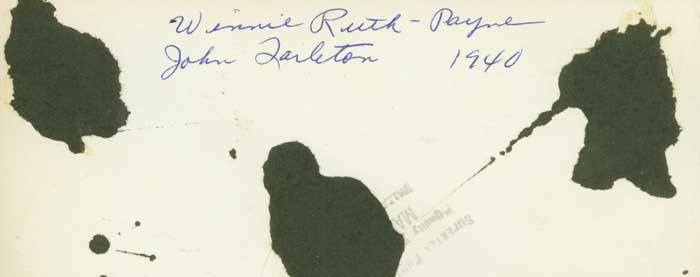 Winnie Ruth - Payne
John Tarleton 1940